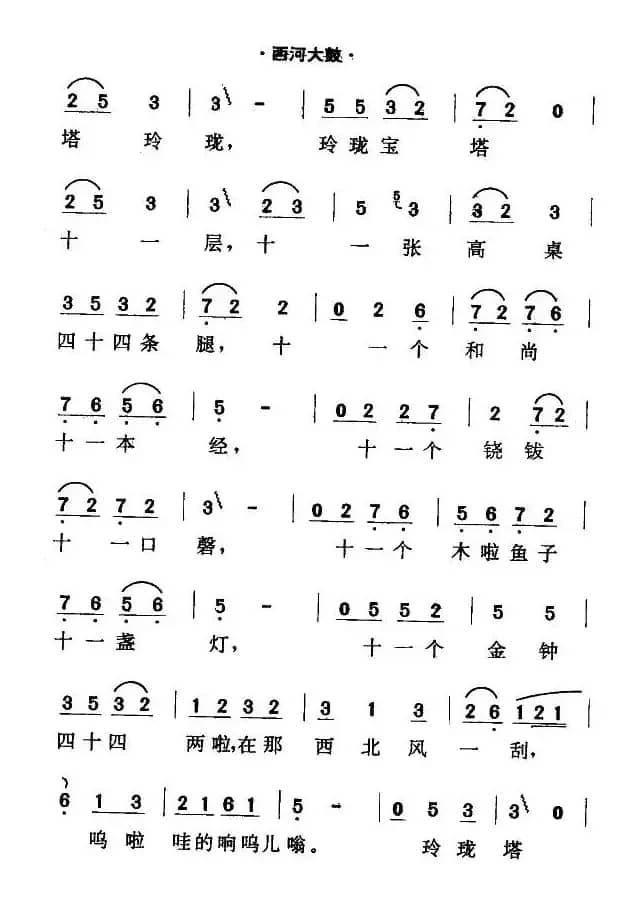 ·西河大鼓·
2 5 3 | 3 - | 5 5 3 2 | 7 2 0 |
塔 玲 珑， 玲珑宝 塔
2 5 3 | 3 2 3 | 5 5 3 | 3 2 3 |
十 一 层，十 一 张 高 桌
3 5 3 2 | 7 2 2 | 0 2 2 6 | 7 2 7 6 |
四十四条 腿， 十 一个 和 尚
7 6 5 6 | 5 - | 0 2 2 7 | 2 7 2 |
十一本 经， 十一个 铙 钹
7 2 7 2 | 3 - | 0 2 7 6 | 5 6 7 2 |
十 一口 磬， 十一个 木啦鱼子
7 6 5 6 | 5 - | 0 5 5 2 | 5 5 |
十一盏 灯， 十一个 金 钟
3 5 3 2 | 1 2 3 2 | 3 1 3 | 2 6 1 2 1 |
四十四 两啦，在那 西 北 风 一 刮，
6 1 3 | 2 1 6 1 | 5 - | 0 5 3 | 3 0 |
呜 啦 哇的响呜儿嗡。 玲 珑 塔